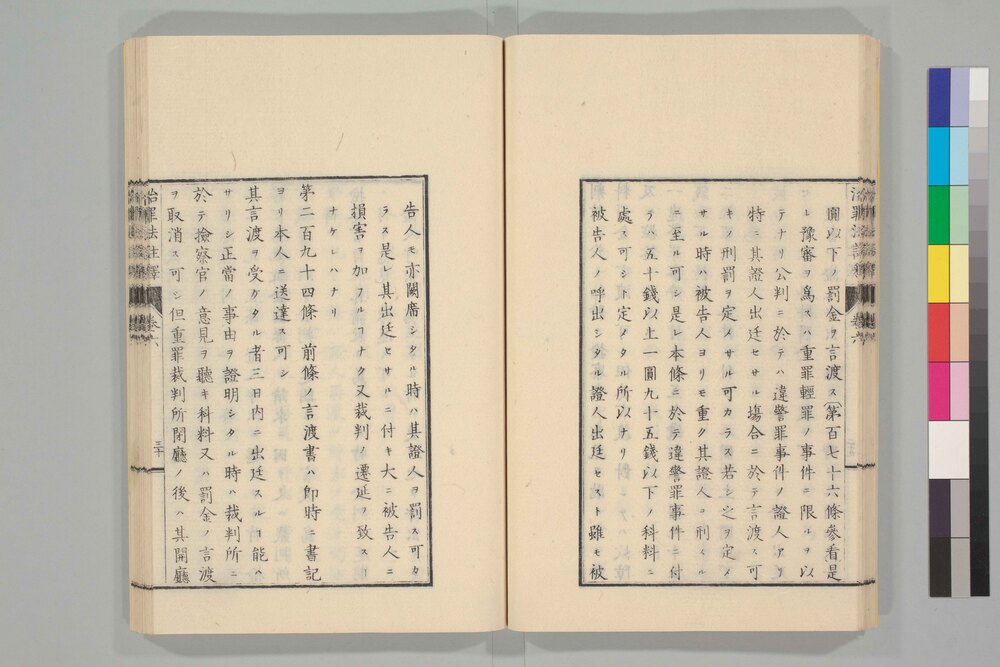 圓以下ノ罰金ヲ言渡ス(第百七十六條參看是
レ豫審ヲ爲スハ重罪輕罪ノ事件ニ限ルヲ以
テナリ公判ニ於テハ違警罪事件ノ證人アリ
特ニ其證人出廷セサル塲合ニ於テ言渡ス可
キノ刑罰ヲ定メサル可カラス若シ之ヲ定メ
サル時ハ被告人ヨリモ重ク其證人ヲ刑スル
ニ至ル可シ是レ本條ニ於テ違警罪事件ニ付
テハ五十錢以上一圓九十五錢以下ノ科料ニ
處ス可シト定メタル所以ナリ
被告人ノ呼出シタル證人出廷セスト雖モ被
告人モ亦闕席シタル時ハ其證人ヲ罰ス可カ
ラス是レ其出廷セサルニ付キ大ニ被告人ニ
損害ヲ加フルヿナク又裁判ノ遷延ヲ致スヿ
ナケレハナリ
第二百九十四條 前條ノ言渡書ハ卽時ニ書記
ヨリ本人ニ送達ス可シ
其言渡ヲ受ケタル者三日內ニ出廷スルヿ能ハ
サリシ正當ノ事由ヲ證明シタル時ハ裁判所ニ
於テ撿察官ノ意見ヲ聽キ科料又ハ罰金ノ言渡
ヲ取消ス可シ但重罪裁判所閉廳ノ後ハ其開廳
治罪法註釋 卷六 三十